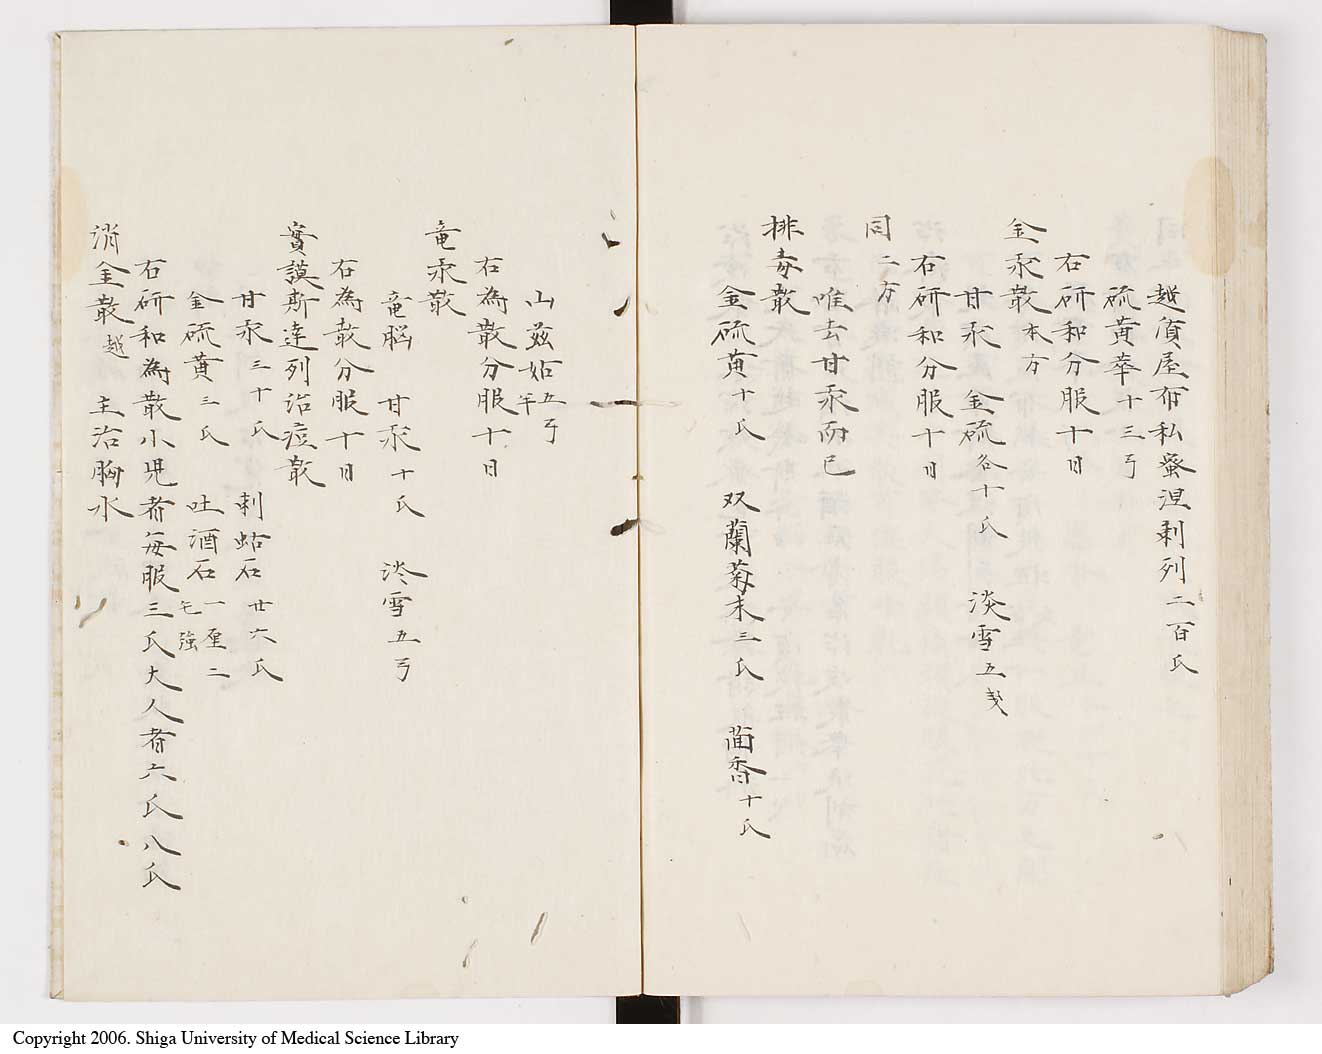 越貭屋布私蛮涅剌列二百氏
硫黄華十三弓
右研和分服十日
金汞散本方
甘汞 金硫各十氏 淡雪五戔
右研和分服十日
同二方
唯去甘汞而已
排毒散
金硫黄十氏 双蘭菊末三氏 茴香十氏
山茲姑五弓半
右為散分服十日
竜汞散
竜脳 甘汞十氏 淡雪五弓
右為散分服十日
實謨斯達列治痘散
甘汞三十氏 剌蛄石廿六氏
金硫黄三氏 吐酒石一厘二毛強
右研和為散小児者毎服三氏大人者六氏八氏
消金散越 主治胸水
Copyright 2006. Shiga University of Medical Science Library